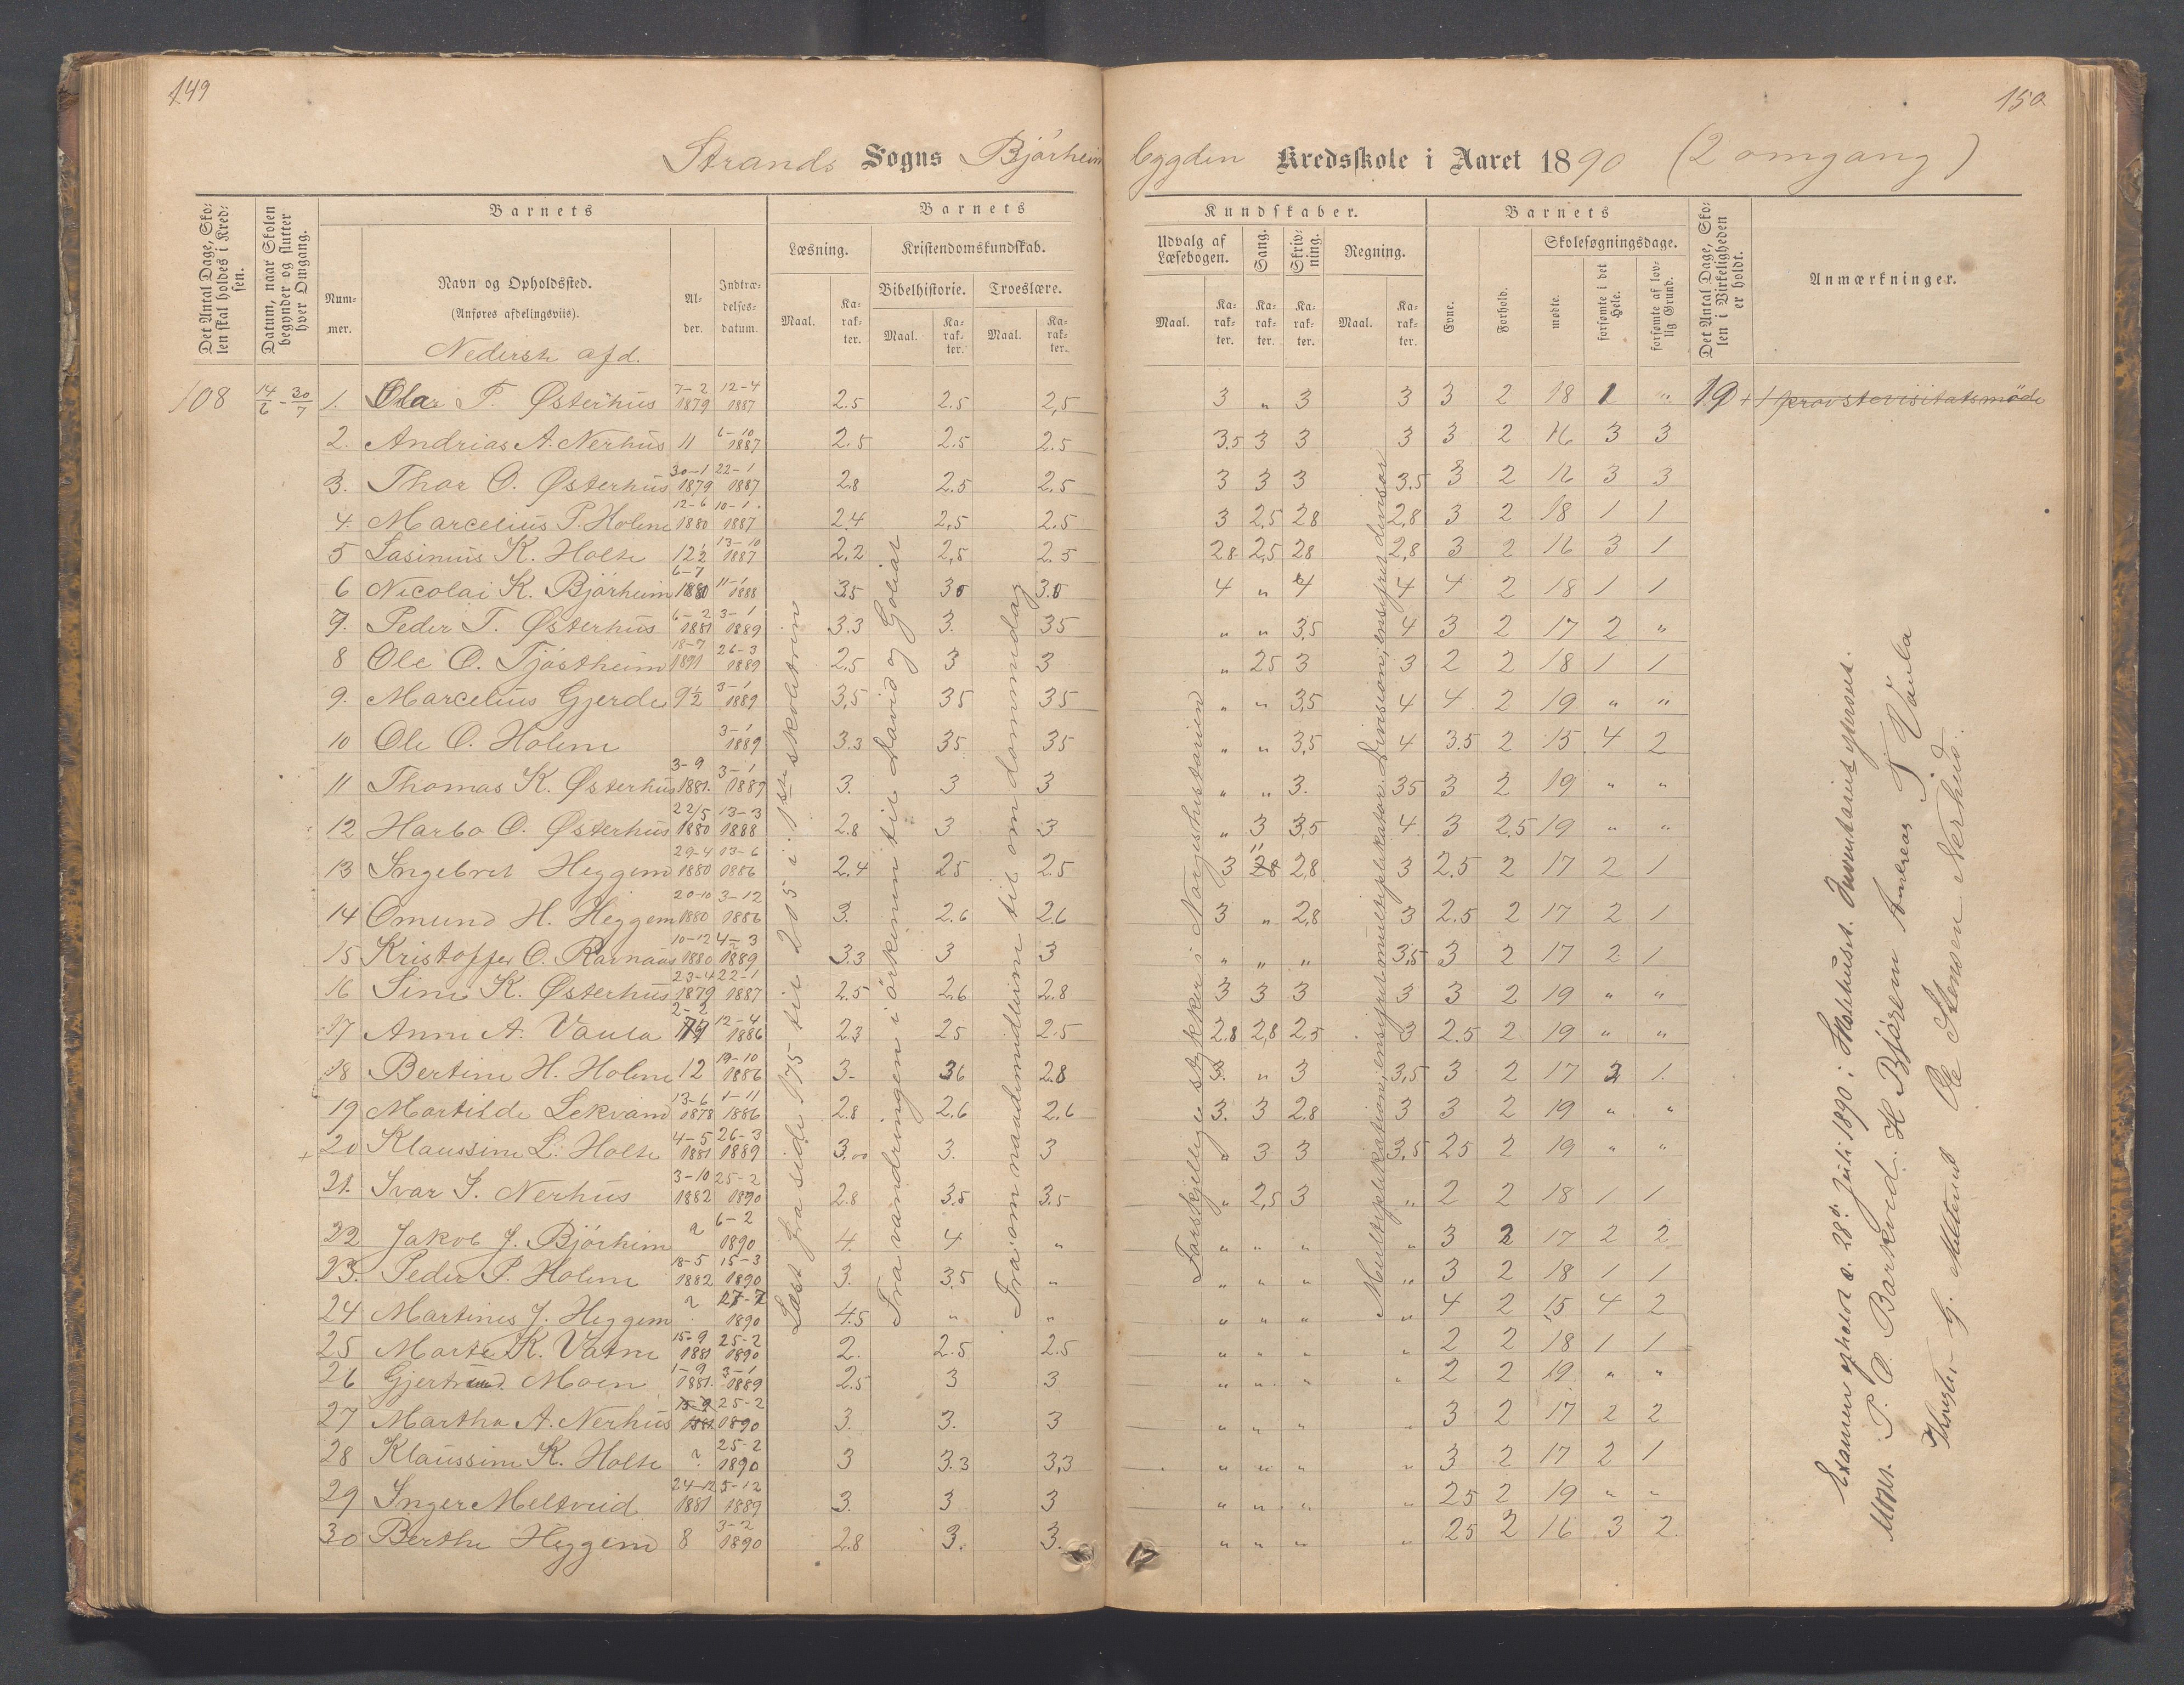 149
150
Strands Sogns Bjørheim
bygden Kredsskole i Aaret 1890 (2 omgang)
Det Antal Dage, Skolen skal holdes i Kredsen.
Datum, naar Skolen begynder og slutter hver Omgang.
Barnets
Nummer.
Navn og Opholdssted.
(Anføres afdelingsviis).
Nederste afd.
Alder.
Indtrædelsesdatum.
Barnets
Læsning.
Maal.
Karakter.
Kristendomskundskab.
Bibelhistorie.
Maal.
Karakter.
Troeslære.
Maal.
Karakter.
Kundskaber.
Udvalg af Læsebogen.
Maal.
Karakter.
Sang.
Karakter.
Skrivning.
Karakter.
Regning.
Maal.
Karakter.
Barnets
Evne.
Forhold.
Skolesøgningsdage.
mødte.
forsømte i det Hele.
forsømte af lovlig Grund.
Det Antal Dage, Skolen i Virkeligheden er holdt.
Anmærkninger.
108 14/6 - 30/7 1. Ola T. Østerhus 7-2 1879 12-4 1887 2.5 2.5 2,5 3 " 3 3 3 2 18 1 " 19 + 1 provstevisitatsmøde
2. Andrias A. Nerhus 11 6-10 1887 2.5 2.5 2.5 3.5 3 3 3 3 2 16 3 3
3. Thor O. Østerhus 30-1 1879 22-1 1887 2.8 2.5 2.5 3 3 3 3.5 3 2 16 3 3
4. Marcelius P. Holm 12-6 1880 10-1 1887 2.4 2,5 2.5 3 2,5 28 2,8 3 2 18 1 1
5 Lasinius K. Holte 12 1/2 13-10 1887 2.2 2,5 2.5 28 2,5 28 2,8 3 2 16 3 1
6 Nicolai K. Bjørheim 6-7 1880 11-1 1888 35 30 3.0 4 " 4 4 4 2 18 1 1
7. Peder T. Østerhus 6-2 1881 3-1 1889 3.3 3. 35 " " 3,5 4 3 2 17 2 "
8 Ole O. Tjøstheim 18-7 1891 26-3 1889 2.5 3 3 " 25 3 3 2 2 18 1 1
9. Marcelius Gjerde 9 1/2 3-1 1889 3,5 35 35 " " 3,5 4 4 2 19 " "
10 Ole O. Holm 3-1 1889 3.3 35 35 " " 3,5 4 3.5 2 15 4 2
11 Thomas K. Østerhus 3-9 1881. 3-1 1889 3. 3 3 " " 3. 35 3 2 19 " "
12 Harbo O. Østerhus 22/5 1880 13-3 1888 2.8 3 3 " 3 3,5 4 3 2.5 19 " "
13 Ingebret Heggem 29-4 1880 13-6 1886 2.4 25 2.5 3 " 2,8 3 2.5 2 17 2 1
14 Omund H. Heggem 20-10 1880 3-12 1886 3. 2.6 26 3 " 2,8 3 2.5 2 17 2 1
15 Kristoffer O. Ravnaas 10-12 1880 4-3 1889 3.3 3 3 " " " 3,5 3 2 17 2 1
16 Sine K. Østerhus 23-4 1879 22-1 1887 2.5 2.6 2.8 3 3 3 3 3 2 19 " "
17 Anne A. Vaula 2-2 12-4 1886 2.3 25 2.5 2.8 2,8 2,5 3 2.5 2 19 " "
18 Bertine H. Holm 12 19-10 1886 3- 36 2.8 3. " 3 3,5 3 2 17 2 1.
19 Martilde Lekvam 13-6 1878 1-11 1886 2.8 2.6 2.6 3. 3 2.8 3 3 2 19 " "
20 Klaussine L. Holte 4-5 1881 26-3 1889 3.00 3. 3 " 3 3 3,5 25 2 19 " "
21. Ivar I. Nerhus 3-10 1882 25-2 1890 2.8 3.5 3.5 " 2,5 3 " 2 2 18 1 1
22 Jakob J. Bjørheim ? 6-2 1890 4. 4 " " " " " 3 2 17 2 2
23. Peder P. Holm 18-5 1882 15-3 1890 3. 3,5 " " " " " 3 2 18 1 1
24 Martines J. Heggem ? 1890 4.5 " " " " " " 4 2 15 4 2
25 Marte K. Vatne 15-9 1881 25-2 1890 2. 2.5 2.5 " " " " 2 2 18 1 1
26 Gjertrud Moen 1-9 1881. 3-1 1889 2.5 3 3 " " " " 2 2 19 " "
27 Martha A. Nerhus 15-9 1881 25-2 1890 3. 3. 3 " " " " 3 2 17 2 2
28 Klaussine K. Holte ? 25-2 1890 3 3.3 3,3 " " " " 3 2 17 2 1
29 Inger Meltveid 24-12 1881 5-12 1889 3. 3 3 " " " " 25 2 19 " "
30 Berthe Heggem 8 3-2 1890 2.8 3. 3. " " " " 25 2 16 3 2.
17
Læst fra side 175 til 205 i 1ste skoletrin
Fra vandringen i ørkenen til David og Goliat
Fra om naademidlerne til om dommedag
Forskjellige stykker i Norgeshistorien
Multiplikation, ensifret multiplikator. Division, ensifret divisor
Examen afholdt d. 28de Juli 1890 i Skolehuset. Inventariet
Mons. P. O. Barkved. H Bjøreim Andreas T Vaula
G. Meltveid Ole Stensen Nerhus.